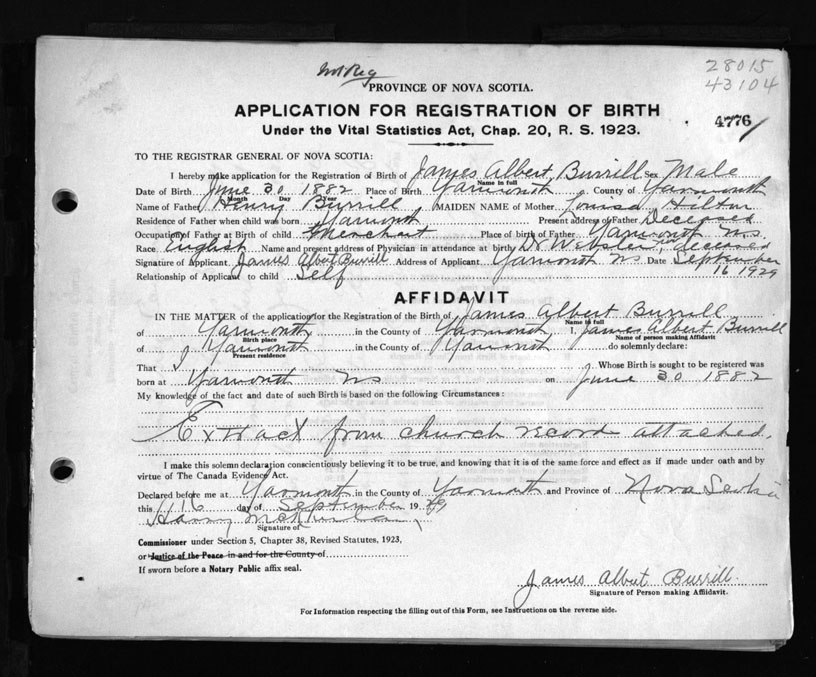 Not Reg
28015
43104
PROVINCE OF NOVA SCOTIA.
APPLICATION FOR REGISTRATION OF BIRTH
4776
Under the Vital Statistics Act, Chap. 20, R. S. 1923.
TO THE REGISTRAR GENERAL OF NOVA SCOTIA:
I hereby make application for the Registration of Birth of James Albert Burrill Sex Male
Name in full
Date of Birth June 30 1882 Place of Birth Yarmouth County of Yarmouth
Month Day Year
Name of Father Henry Burrill MAIDEN NAME of Mother Louisa Hilton
Residence of Father when child was born Yarmouth Present address of Father Deceased
Occupation of Father at Birth of child Merchant Place of birth of Father Yarmouth N.S.
Race English Name and present address of Physician in attendance at birth Dr Webster deceased
Signature of Applicant James Albert Burrill Address of Applicant Yarmouth NS Date September
16 1929
Relationship of Applicant to child Self
AFFIDAVIT
IN THE MATTER of the application for the Registration of the Birth of James Albert Burrill
Name in full
of Yarmouth in the County of Yarmouth I, James Albert Burrill
Birth place Name of person making Affidavit
of Yarmouth in the County of Yarmouth do solemnly declare:
Present residence
That I Whose Birth is sought to be registered was
born at Yarmouth NS on June 30 1882
My knowledge of the fact and date of such Birth is based on the following Circumstances:
Extract from church record attached.
I make this solemn declaration conscientiously believing it to be true, and knowing that it is of the same force and effect as if made under oath and by
virtue of The Canada Evidence Act.
Declared before me at Yarmouth in the County of Yarmouth and Province of Nova Scotia
this 16 day of September 1929
Harry
Signature of
Commissioner under Section 5, Chapter 38, Revised Statutes, 1923,
or Justice of the Peace in and for the County of
If sworn before a Notary Public affix seal.
James Albert Burrill
Signature of Person making Affidavit.
For Information respecting the filling out of this Form, see Instructions on the reverse side.